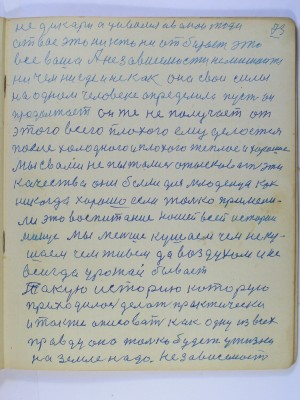 не дикари а цивилизованой люди
от вас это никто ни отбирает это
все ваша А независимости не мешаите
ни чем нигде не как она свои силы
на одном человеке определила пусть он
продолжает он же не получает от
этого всего плохого ему делается
после холодного и плохого теплое и хорошее
Мы с вами не пытались отыскивать эти
качества они были для младенца как
никогда хорошо если только примени-
ли это воспитание нашей всей истории
Мы меньше кушаем чем не ку-
шаем чем живем да воздухом и не
всегда урожай бывает
Такую историю которую
приходилося делать практически
и также описовать как одну из всех
правду она только будет у жизни
на земле надо независимость